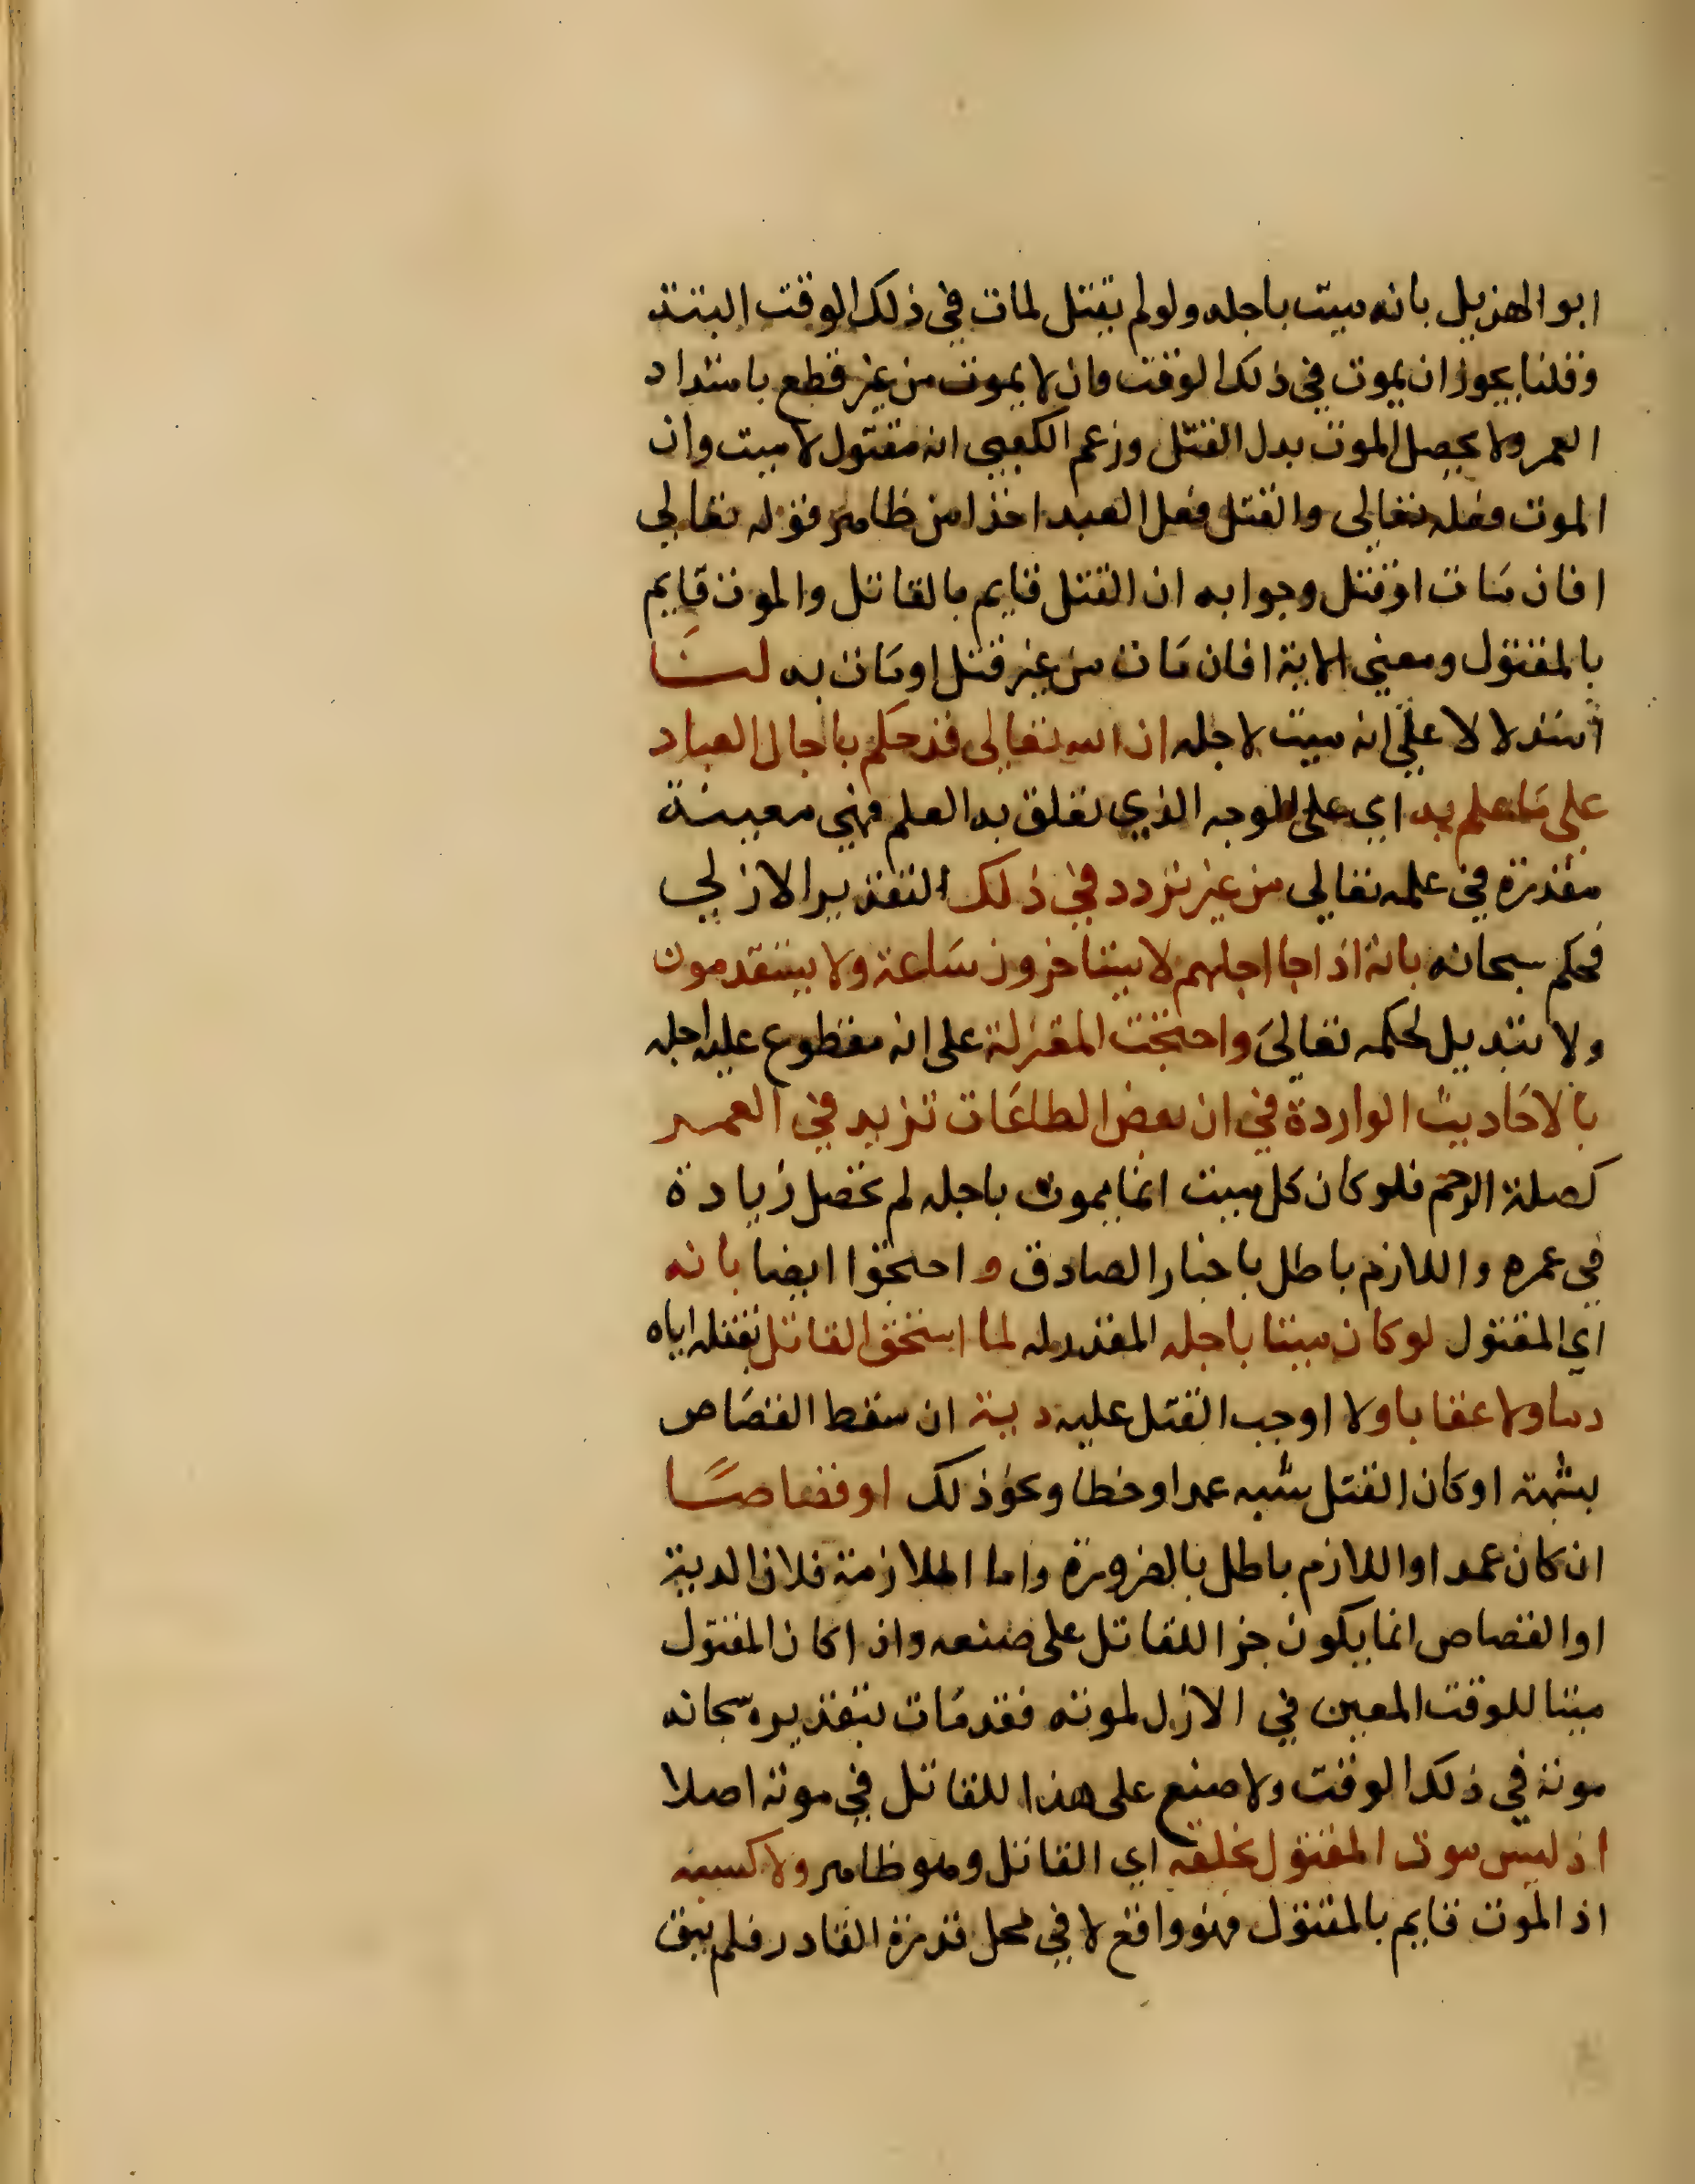 ابو الهزيل بانه ميت باجله ولولم يقتل لمات في ذلك الوقت البتة
وقلنا يجوز ان يموت في ذلك الوقت وان لا يموت من غير قطع بامتداد
العمر ولا يحصل الموت بدل القتل وزعم الكعبي انه مقتول لا ميت وان
الموت فعله تعالى والقتل فعل العبد اخذا من ظاهر قوله تعالى
افان مات او قتل وجوابه ان القتل قايم بالقاتل والموت قايم
بالمقتول ومعنى الاية افان مات من غير قتل او مات به لنا
استدلالا على انه ميت لاجله ان الله تعالى قد حكم باجال العباد
على ما علم به اي على الوجه الذي تعلق به العلم فهي معينة
مقدرة في علمه تعالى من غير تردد في ذلك التقدير الازلي
فحكم سبحانه بانه اذا جا اجلهم لا يستاخرون ساعة ولا يستقدمون
ولا تبديل لحكمه تعالى واحتجت المعتزلة على انه مقطوع عليه اجله
بالاحاديث الواردة في ان بعض الطاعات تزيد في العمر
كصلة الرحم فلو كان كل ميت انما يموت باجله لم تحصل زيادة
في عمره واللازم باطل باخبار الصادق و احتجوا ايضا بانه
اي المقتول لو كان ميتا باجله المقدر له لما استحق القاتل بقتله اياه
ذما ولا عقابا ولا اوجب القتل عليه دية ان سقط القصاص
بشبهة او كان القتل شبه عمد او خطا ونحو ذلك او قصاصا
ان كان عمدا واللازم باطل بالضرورة واما الملازمة فلان الدية
او القصاص انما يكون جزا للقاتل على صنعه واذا كان المقتول
ميتا للوقت المعين في الازل لموته فقد مات بتقديره سبحانه
موته في ذلك الوقت ولا صنع على هذا للقاتل في موته اصلا
اذ ليس موت المقتول بخلقه اي القاتل وهو ظاهر ولا كسبه
اذ الموت قايم بالمقتول فهو واقع لا في محل قدرة القادر فلم يبق